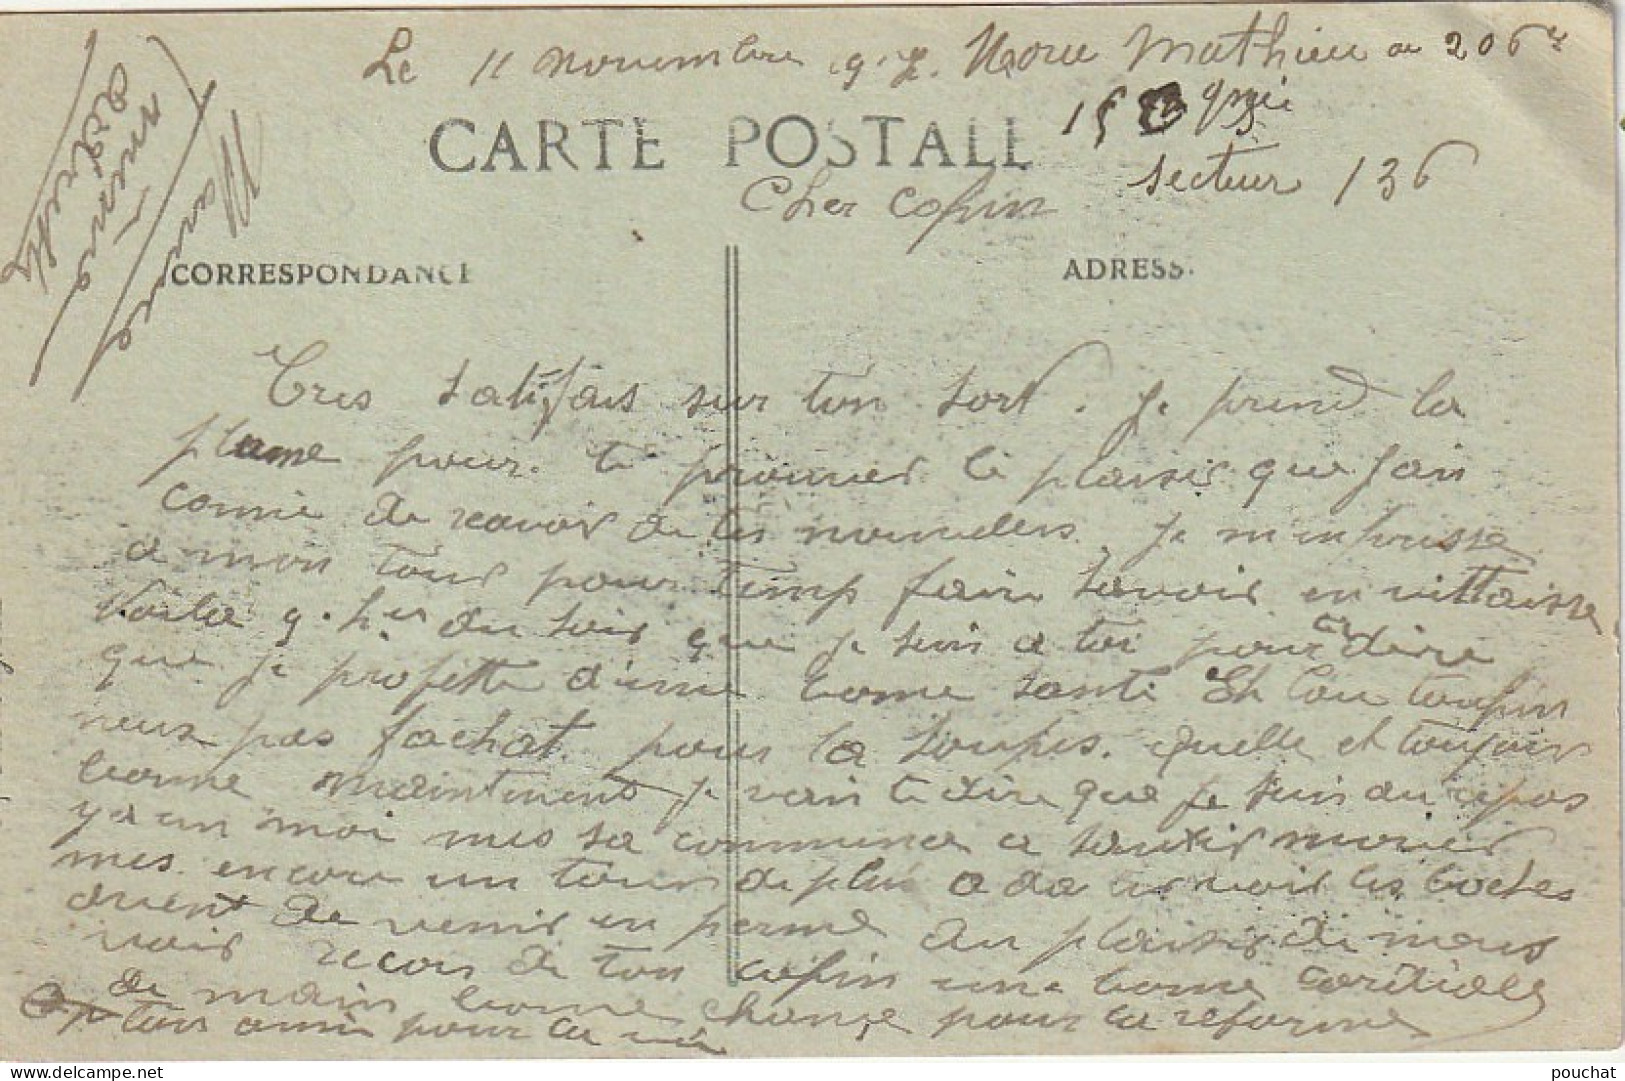 Le 11 novembre 917. Mathieu au 206e
15 Cgnie
CARTE POSTALE
secteur 136
Cher Copin
CORRESPONDANCE
ADRESSE
Tres satifais sur ton sort. Je prend la
plume pour te prouver le plaisir que jai
de reavoir de tes nouvelles. Je m'enpresse
a mon tour pour temp faire savoir en vittaisse
Voila 9.hes du soir que je suis a toi pour te dire
que je profitte d'une bonne santé Et lou toupin
neus pas fachat pour la soupes. quelle et toujour
bonne maintenent je vais te dire que je suis au repos
ya un moi mes sa commence a sentir mauvés
mes encore un tour de plus a voir les boches
avent de venir en perme au plaisir de nous
voir recoi de ton copin une bonne cordiale
de main bonne chance pour la reforme
ton ami pour la vie
Marcel